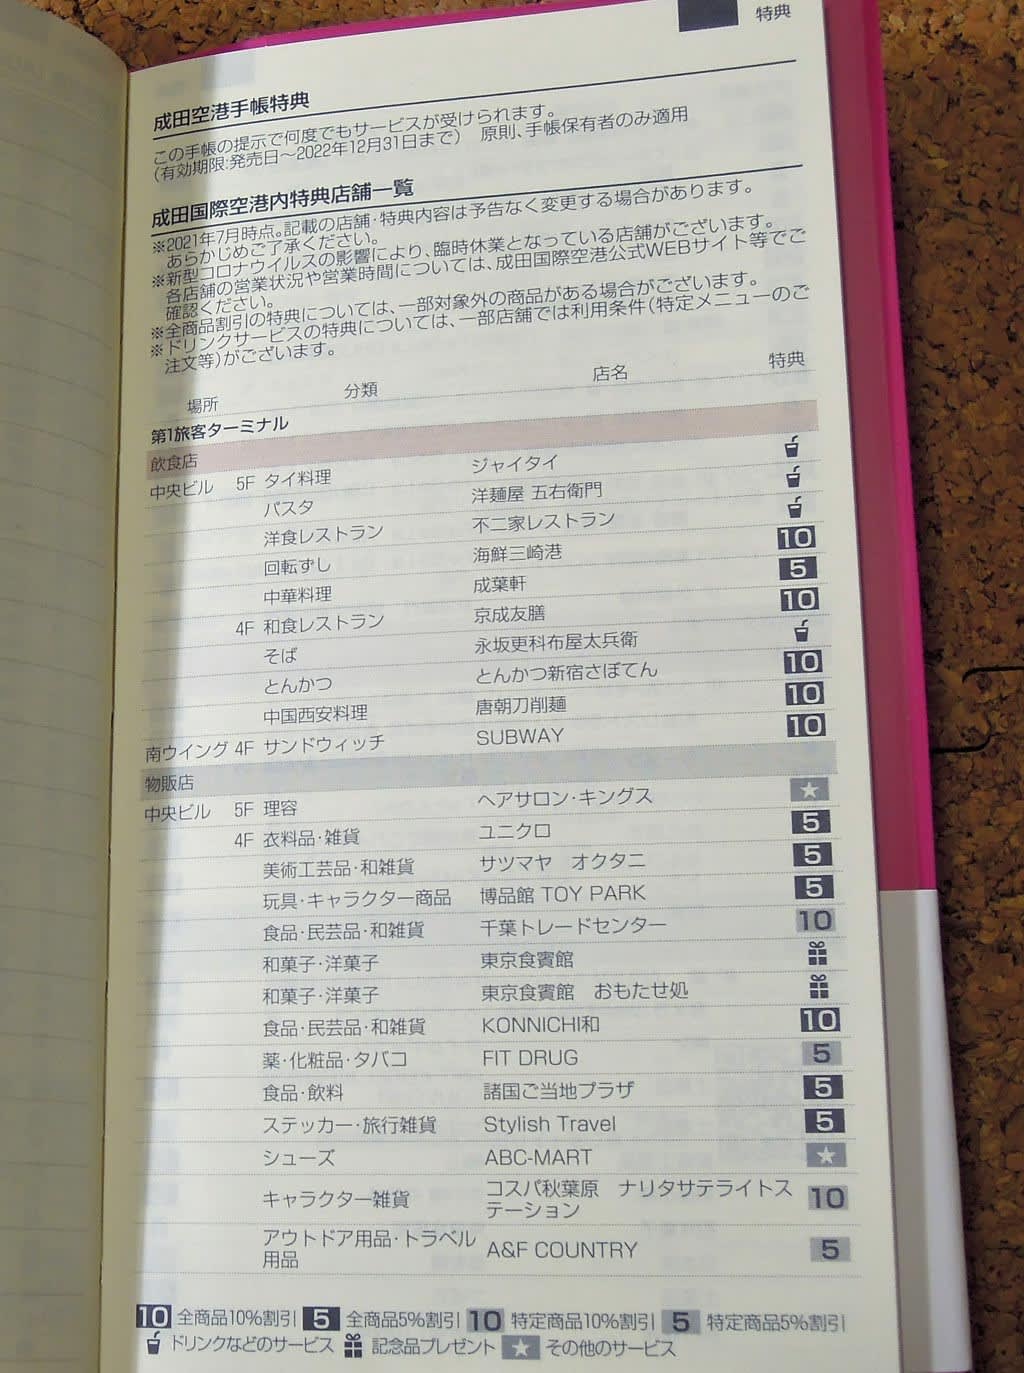 特典
成田空港手帳特典
この手帳の提示で何度でもサービスが受けられます。
(有効期限:発売日～2022年12月31日まで)　原則、手帳保有者のみ適用
成田国際空港内特典店舗一覧
※2021年7月時点。記載の店舗・特典内容は予告なく変更する場合があります。
あらかじめご了承ください。
※新型コロナウイルスの影響により、臨時休業となっている店舗がございます。
各店舗の営業状況や営業時間については、成田国際空港公式WEBサイト等でご
確認ください。
※全商品割引の特典については、一部対象外の商品がある場合がございます。
※ドリンクサービスの特典については、一部店舗では利用条件(特定メニューのご
注文等)がございます。
場所 分類 店名 特典
第1旅客ターミナル
飲食店
中央ビル 5F タイ料理 ジャイタイ
パスタ 洋麺屋 五右衛門
洋食レストラン 不二家レストラン
回転ずし 海鮮三崎港 10
中華料理 成葉軒 5
4F 和食レストラン 京成友膳 10
そば 永坂更科布屋太兵衛
とんかつ とんかつ新宿さぼてん 10
中国西安料理 唐朝刀削麺 10
南ウイング 4F サンドウィッチ SUBWAY 10
物販店
中央ビル 5F 理容 ヘアサロン・キングス ★
4F 衣料品・雑貨 ユニクロ 5
美術工芸品・和雑貨 サツマヤ　オクタニ 5
玩具・キャラクター商品 博品館 TOY PARK 5
食品・民芸品・和雑貨 千葉トレードセンター 10
和菓子・洋菓子 東京食賓館
和菓子・洋菓子 東京食賓館　おもたせ処
食品・民芸品・和雑貨 KONNICHI和 10
薬・化粧品・タバコ FIT DRUG 5
食品・飲料 諸国ご当地プラザ 5
ステッカー・旅行雑貨 Stylish Travel 5
シューズ ABC-MART ★
キャラクター雑貨 コスパ秋葉原　ナリタサテライトス 10
テーション
アウトドア用品・トラベル A&F COUNTRY 5
用品
10 全商品10%割引 5 全商品5%割引 10 特定商品10%割引 5 特定商品5%割引
ドリンクなどのサービス 記念品プレゼント ★ その他のサービス